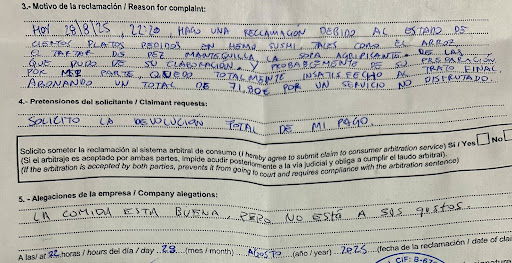 3.- Motivo de la reclamación / Reason for complaint:
HOY 28/8/25, 22:20 HAGO UNA RECLAMACION DEBIDO AL ESTADO DE
CIERTOS PLATOS PEDIDOS EN HEMO SUSHI, TALES COMO EL ARROZ
O TARTAR DE PEZ MANTEQUILLA LA SOPA AGRIPICANTE. DE LAS
QUE DUDO DE SU ELABORACION Y PROBABLEMENTE DE SU PREPARACION
POR MI PARTE QUEDO TOTALMENTE INSATISFECHO AL TRATO FINAL
ABONANDO UN TOTAL DE 71,80€ POR UN SERVICIO NO DISFRUTADO.
4.- Pretensiones del solicitante / Claimant requests:
SOLICITO LA DEVOLUCIÓN TOTAL DE MI PAGO.
Solicito someter la reclamación al sistema arbitral de consumo (I hereby agree to submit claim to consumer arbitration service) Sí / Yes No
(Si el arbitraje es aceptado por ambas partes, impide acudir posteriormente a la vía judicial y obliga a cumplir el laudo arbitral).
(If the arbitration is accepted by both parties, prevents it from going to court and requires compliance with the arbitration sentence)
5. - Alegaciones de la empresa / Company alegations:
LA COMIDA ESTA BUENA, PERO NO ESTÁ A SUS gustos.
A las/ at 22 horas / hours del día / day 28 (mes / month) AGOSTO (año / year) 2025 (fecha de la reclamación / date of clai
CIF: B-67